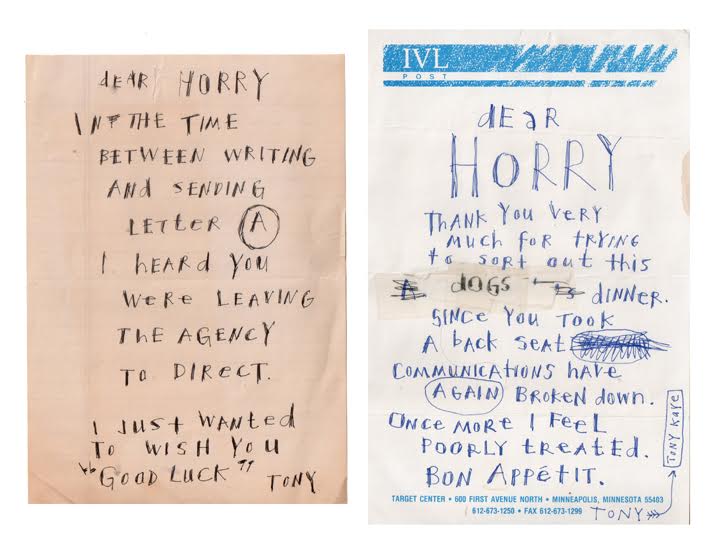 dEAR HORRY
IN THE TIME
BETWEEN WRITING
AND SENDING
LETTER A
I hEARd YOU
WERE LEAVING
THE AGENCY
TO DIRECT.
I JUST WANTEd
TO WISH YOU
"GOOD LUCK"
TONY
IVL
POST
dEAR
HORRY
THANK YOU VERY
MUCH FOR TRYING
to SORT out this
dOGS DINNER.
SINCE YOU TOOK
A bACK SEAT
COMMUNICATIONS HAVE
AGAIN BROKEN dOWN.
ONCE MORE I FEEL
POORLY tREATED.
BON APPÉTIT.
TONY KAYE
TARGET CENTER • 600 FIRST AVENUE NORTH • MINNEAPOLIS, MINNESOTA 55403
612-673-1250 • FAX 612-673-1299
TONY